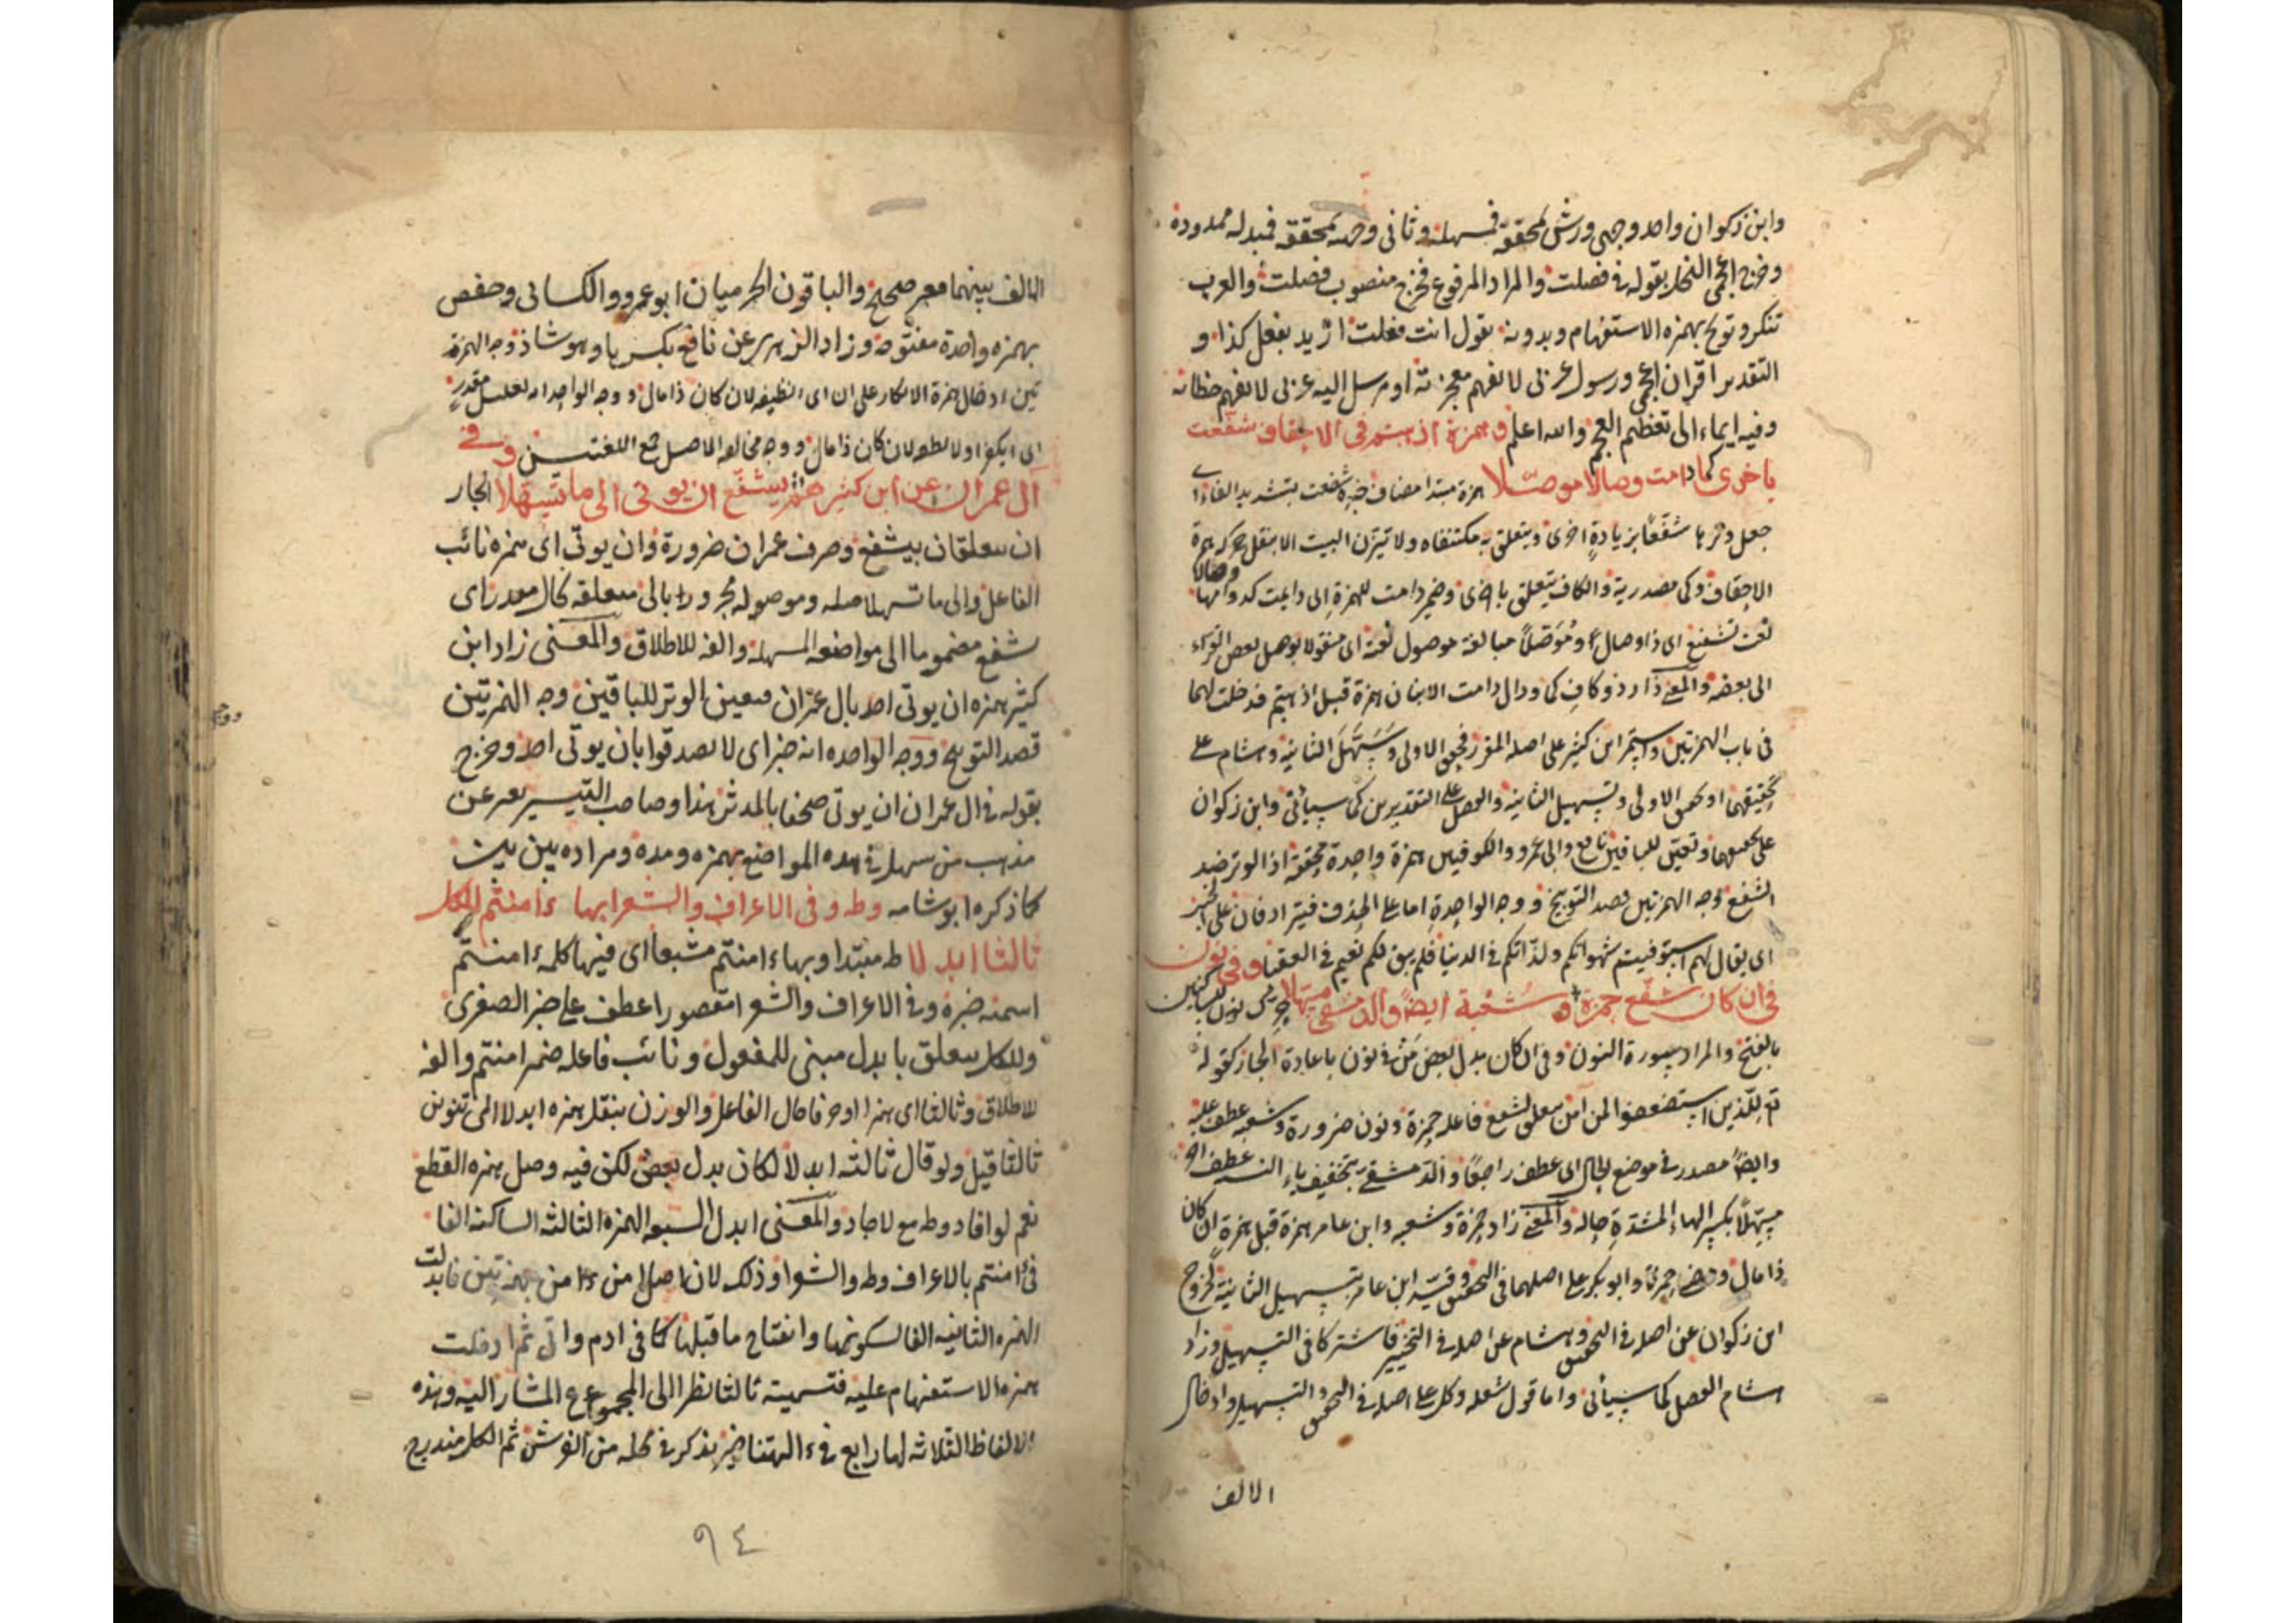 وابن ذكوان واحد وجهي ورش محققة فمسهلة وثاني وجهه محققة فمبدلة ممدودة
وخرج اعجمي النحل بقوله في فصلت والمراد المرفوع فخرج منصوب فصلت والعرب
تنكر وتوبخ بهمزه الاستفهام وبدونه تقول انت فعلت ازيد يفعل كذا و
التقدير اقران اعجمي ورسول عربي لا نفهم معجزته او مرسل اليه عربي لا نفهم خطابه
وفيه ايماء الى تعظيم العجم والله اعلم وهمزة اذهبتم في الاحقاف شفعت
باخرى كما دامت وصالا موصلا همزة مبتدا مضاف خبره شفعت بتشديد الفاء اي
جعل وترها شفعا بزيادة اخرى ويتعلق به مكتنفاه ولا تيزن البيت الا بنقل حركة همزة
الاحقاف وكما مصدرية والكاف يتعلق باخرى وضمير دامت للهمزة اي دامت كدوامها وصالا
نعت تشفيع اي ذا وصال وموصلا مبالغة موصول نعته اي منقولا يوصل بعض القراء
الى بعضه والمعنى زاد ذو كاف كما ودال دامت الابنان همزة قبل اذهبتم فدخلت لهما
في باب الهمزتين واستمر ابن كثير على اصله المقرر فحقق الاولى وسهل الثانية وهشام على
تحقيقهما او تحقيق الاولى وتسهيل الثانية والفصل على التقديرين كما سيأتي وابن ذكوان
على تحقيقهما وتعين للباقين نافع وابي عمرو والكوفيين همزة واحدة محققة اذ الوتر ضد
الشفع وجه الهمزتين قصد التوبيخ ووجه الواحدة اما على الحذف فيترادفان على الخبر
اي يقال لهم استوفيتم شهواتكم ولذاتكم في الدنيا فلم يبق لكم نعيم في العقبا وفي نون
في ان كان شفع حمزة وشعبة ايضا والدمشقي مسهلا
بالفتح والمراد سورة النون وفي ان كان بدل بعض من في نون باعادة الجار كقوله
للذين استضعفوا لمن آمن متعلق شفع فاعله حمزة ونون ضرورة وشعبة عطف عليه
وايضا مصدر في موضع الحال اي عطف راجعا والدمشقي بتخفيف ياء النسب عطف اخر
مسهلا بكسر الهاء المشددة حاله والمعنى زاد حمزة وشعبه وابن عامر همزة قبل همزة ان كان
ذا مال حمزة وابو بكر على اصلهما في التحقيق وقيد ابن عامر بتسهيل الثانية لخروج
ابن ذكوان عن اصله في التحقيق وهشام عن اصله في التخيير فاشتركا في التسهيل وزاد
هشام الفصل كما سيأتي واما قول شعله وكل على اصله في التحقيق والتسهيل وادخال
الالف
الالف بينهما فغير صحيح والباقون الحرميان ابو عمرو والكسائي وحفص
بهمزه واحدة مفتوحة وزاد الزهري عن نافع بكسرها وهو شاذ وجه الهمزة
تين ادخال همزة الانكار على ان اي لان كان ذا مال ووجه الواحد مقدر
اي لان كان ذا مال ووجه الاصل جمع اللغتين وفي
آل عمران عن ابن كثيرهم يشفع ان يوتى الى ما تسهلا الجار
ان يتعلقان بيشفع وصرف عمران ضرورة وان يوتى اي همزه نائب
الفاعل والى ما تسهلا صله وموصوله مجرور بالى متعلقه كال مقدر اي
شفع مضموما الى مواضعه المسهلة والفه للاطلاق والمعنى زاد ابن
كثير همزه ان يوتى احد بال عمران فتعين الوتر للباقين وجه الهمزتين
قصد التوبيخ ووجه الواحده انه خبر اي لا تصدقوا بان يوتى احد وخرج
بقوله في ال عمران ان يوتى صحفا بالمدثر هذا وصاحب التيسير يعبر عن
مذهب من سهل في هذه المواضع بهمزه ومده ومراده بين بين
كما ذكره ابو شامه وطه وفي الاعراف والشعرا بها ءامنتم للكل
ثالثا ابدلا طه مبتدا وبها ءامنتم مشبعا اي فيها كلمة ءامنتم
اسميه خبره وفي الاعراف والشعرا مقصورا عطف على خبر الصغرى
وللكل يتعلق بابدل مبني للمفعول ونائب فاعله ضمير امنتم والفه
للاطلاق وثالثا اي همزا او حرفا حال الفاعل والوزن بنقل همزه ابدلا الى تنوين
ثالثا قيل ولو قال ثالثه ابدلا لكان بدل بعض لكن فيه وصل همزه القطع
نعم لو افاد وطه مع لاجاد والمعنى ابدل السبعه الهمزه الثالثه الساكنه الفا
في ءامنتم بالاعراف وطه والشعرا وذلك لان اصل امن ءامن بهمزتين فابدلت
الهمزه الثانيه الفا لسكونها وانفتاح ما قبلها كما في ادم واتى ثم ادخلت
همزه الاستفهام عليه فتسميته ثالثا نظرا الى المجموع المشار اليه وهذه
الالفاظ الثلاثه لها رابع في ءالهتنا خير يذكر في محله من الفرش ثم الكل مندرج
٩٤